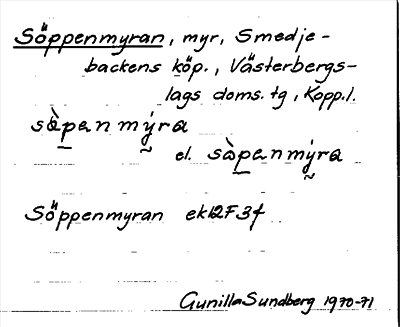 Söppenmyran, myr, Smedje-
backens köp., Västerbergs-
lags doms. tg, Kopp.l.
sòpenmýra
el. sòpenmýra
Söppenmyran ek 12F3f
Gunilla Sundberg 1970-71